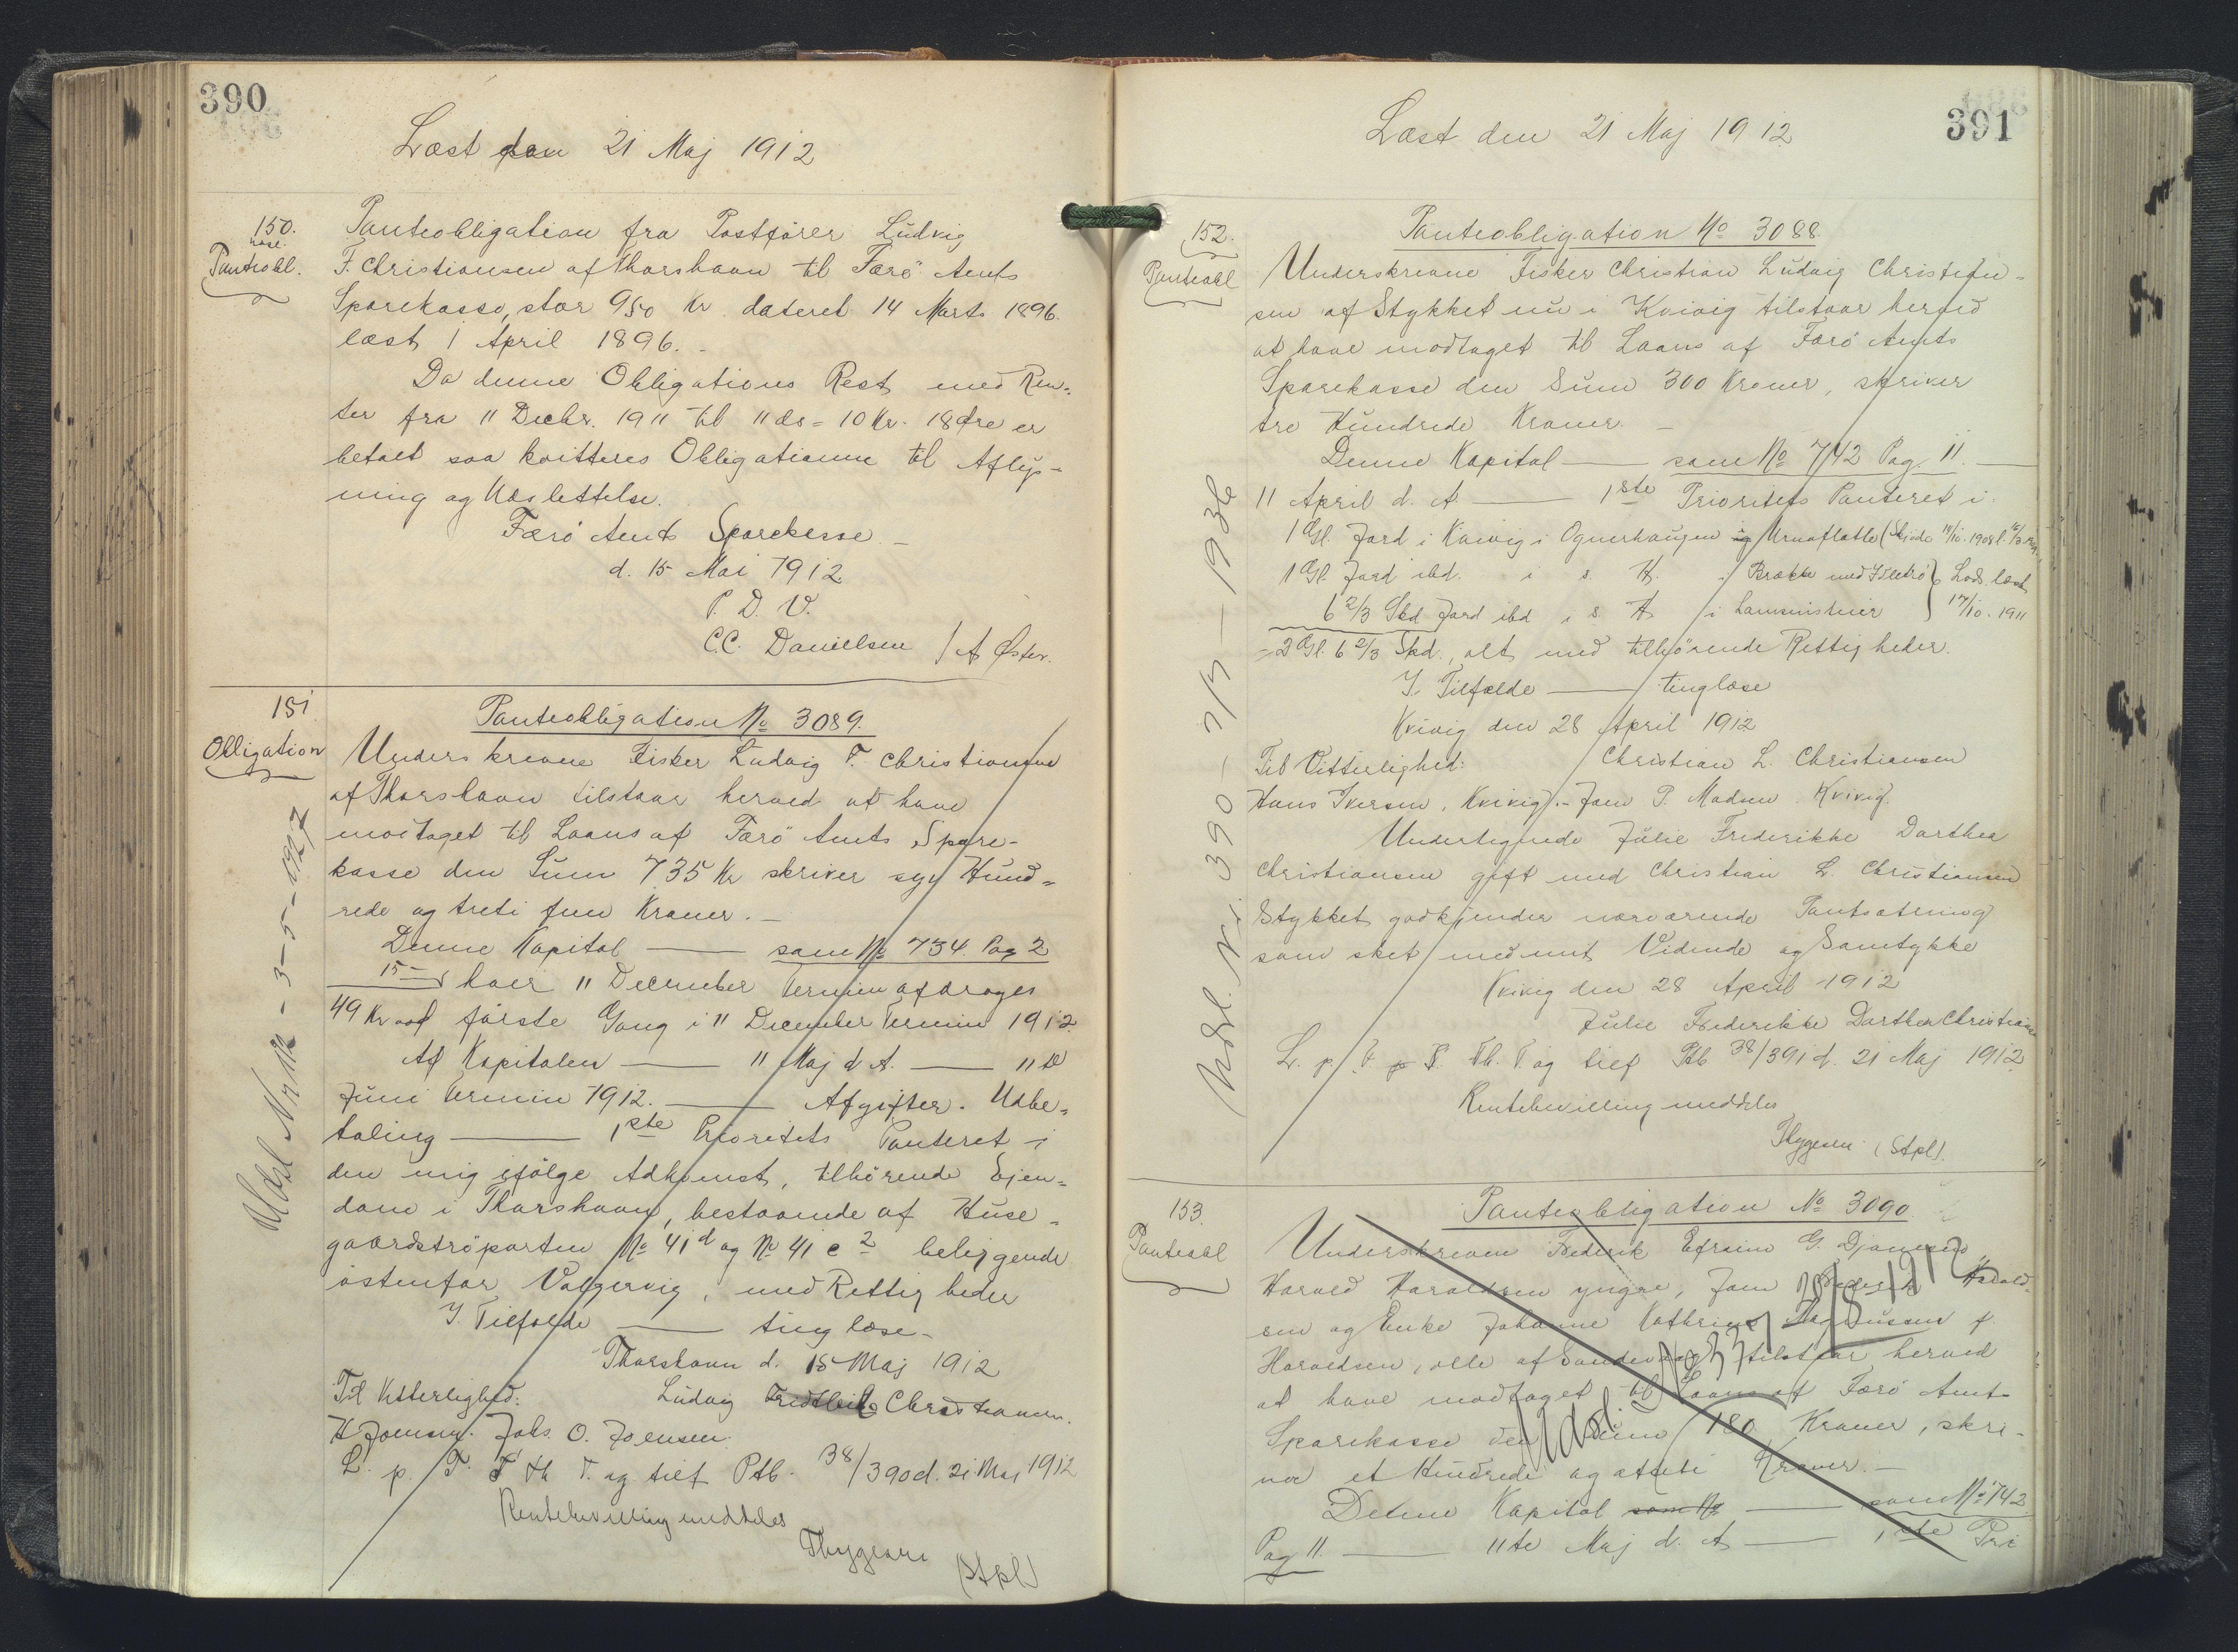 390
Læst den 21 Maj 1912
150.
kasc.
Panteobl.
Panteobligation fra Postfører Ludvig
F. Christiansen af Thorshavn til Færö Amts
Sparekasse, stor 950 Kr. dateret 14 Marts 1896.
læst 1 April 1896. -
Da denne Obligations Rest med Ren-
ter fra 11 Decbr. 1911 til 11 ds = 10 Kr. 18 Øre er
betalt saa kvitteres Obligationen til Aflys-
ning og Udslettelse.
Færö Amts Sparekasse -
d. 15 Mai 1912
P. D. V.
C.C. Danielsen / A Øster.
151
Obligation
Panteobligation No 3089.
Underskrevne Fisker Ludvig F. Christiansen
af Thorshavn tilstaar herved at have
modtaget til Laans af Færö Amts Spare-
kasse den Sum 735 Kr skriver syv Hund-
rede og treti fem Kroner. -
Denne Kapital — som No 734. Pag 2
15 — hver 11 December Termin afdrages
49 Kr første Gang i 11 December Termin 1912
Af Kapitalen — 11 Maj d A. — 11 te
Juni Termin 1912. — Afgifter. Udbe-
taling — 1ste Prioritets Panteret i
den mig ifølge Adkomst, tilhörende Ejen-
dom i Thorshavn, bestaaende af Huse -
gaardströparten No 41 d og No 41 c 2 beliggende
østenfor Vaagervig, med Rettigheder
I Tilfælde — ting læse -
Thorshavn d. 15 Maj 1912
Til Vitterlighed: Ludvig Christiansen.
H Joensen. Johs. O. Joensen.
L. p. F. T. Th. T. og tilf Ptb. 38/390 d. 21 Maj 1912
Rentebevilling meddeles
Thygesen
(Stpl)
Udsl Nr 112 - 3 - 5 - 1927
391
Læst den 21 Maj 1912
152.
Panteobl
Panteobligation No 3088.
Underskrevne Fisker Christian Ludvig Christian-
sen af Stykket nu i Kvivig tilstaar herved
at have modtaget til Laans af Færö Amts
Sparekasse den Sum 300 Kroner, skriver
tre Hundrede Kroner. -
Denne Kapital — som No 742 Pag. 11. —
11 April d. A. — 1ste Prioritets Panteret i
1 Gl. Jord i Kvivig i Ognerhaugen og (Skjøde 11/10. 1908 l.
1 Gl. Jord ibd. i s. H. Brække med } Lods. læst
6 2/3 Skd Jord ibd i s H i 17/10. 1911
= 2 Gl. 6 2/3 Skd., alt med tilhørende Rettigheder.
I Tilfælde — tinglæse
Kvivig den 28 April 1912
Til Vitterlighed: Christian L. Christiansen
Hans Iversen, Kvivig. - Joen P. Madsen. Kvivig.
Undertegnede Julie Frederikke Dorthea
Christiansen gift med Christian L. Christiansen
Stykket godkjender nærværende Pantsætning
som sket med mit Vidende og Samtykke
Kvivig den 28 April 1912
Julie Frederikke Dorthea Christiansen
L. p. F. T. Th. T. og tilf Ptb 38/391 d. 21 Maj 1912
Rentebevilling meddeles
Thygesen (Stpl).
Udsl. Nr. 390 - 7/3 - 1936
153.
Panteobl
Panteobligation No 3090.
Underskrevne Frederik Efraim G. Djonesen
Harald Haraldsen yngre, Joen Harald-
sen og Enke Johanne Kathrine Magnussen f.
Haraldsen, alle af Sandevaag tilstaar herved
at have modtaget til Laans af Færö Amt-
Sparekasse den Sum 180 Kroner, skri-
ver et Hundrede og otteti Kroner. -
Denne Kapital som No — som No 742
Pag 11. — 11te Maj d. A — 1ste Pri